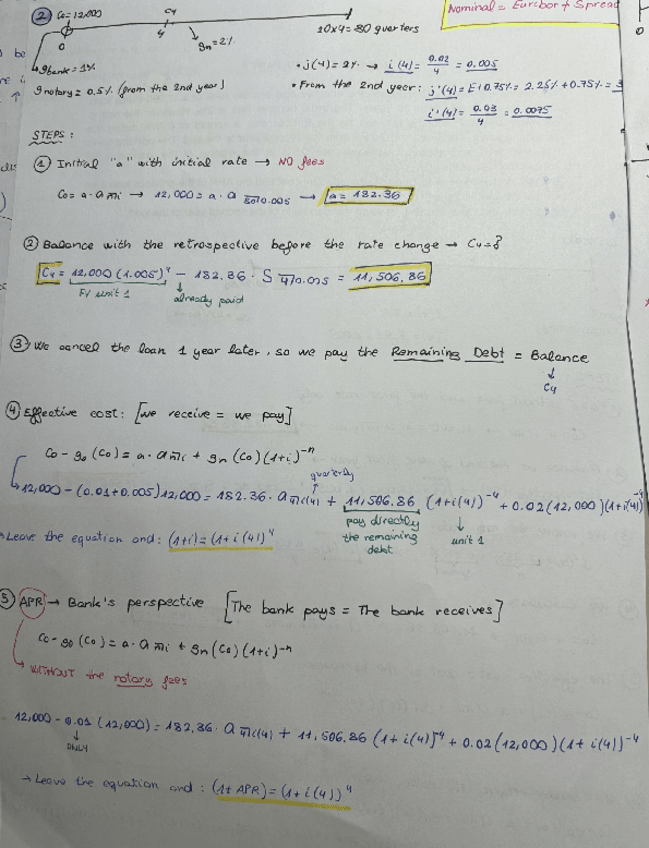 Nominal = Euribor + Spread
② C₀ = 12,000
C4
0
4
20x4 = 80 quarters
gn = 2%
gbank = 1%
gnotary = 0.5% (from the 2nd year)
• j(4) = 2% → i(4) = 0.02/4 = 0.005
• From the 2nd year: j'(4) = E+0.75% = 2.25% + 0.75% = 3
i'(4) = 0.03/4 = 0.0075
STEPS:
① Initial "a" with initial rate → NO fees
C₀ = a · a n̅| i → 12,000 = a · a 80̅| 0.005 → a = 182.36
② Balance with the retrospective before the rate change → C4 = ?
C4 = 12,000 (1.005)⁴ − 182.36 · S 4̅| 0.005 = 11,506.86
FV unit 1
already paid
③ We cancel the loan 1 year later, so we pay the Remaining Debt = Balance
↓
C4
④ Effective cost: [we receive = we pay]
C₀ − g₀ (C₀) = a · a n̅| i + gn (C₀) (1+i)⁻ⁿ
quarterly
↳ 12,000 − (0.01+0.005) 12,000 = 182.36 · a 4̅| i(4) + 11,506.86 (1+i(4))⁻⁴ + 0.02 (12,000) (1+i(4))⁻⁴
pay directly the remaining debt
unit 1
Leave the equation and: (1+i) = (1+i(4))⁴
⑤ APR → Bank's perspective [The bank pays = The bank receives]
C₀ − g₀ (C₀) = a · a n̅| i + gn (C₀) (1+i)⁻ⁿ
↳ WITHOUT the notary fees
12,000 − 0.01 (12,000) = 182,36 · a 4̅| i(4) + 11,506.86 (1+i(4))⁻⁴ + 0.02 (12,000) (1+i(4))⁻⁴
↓
ONLY
→ Leave the equation and: (1+APR) = (1+i(4))⁴